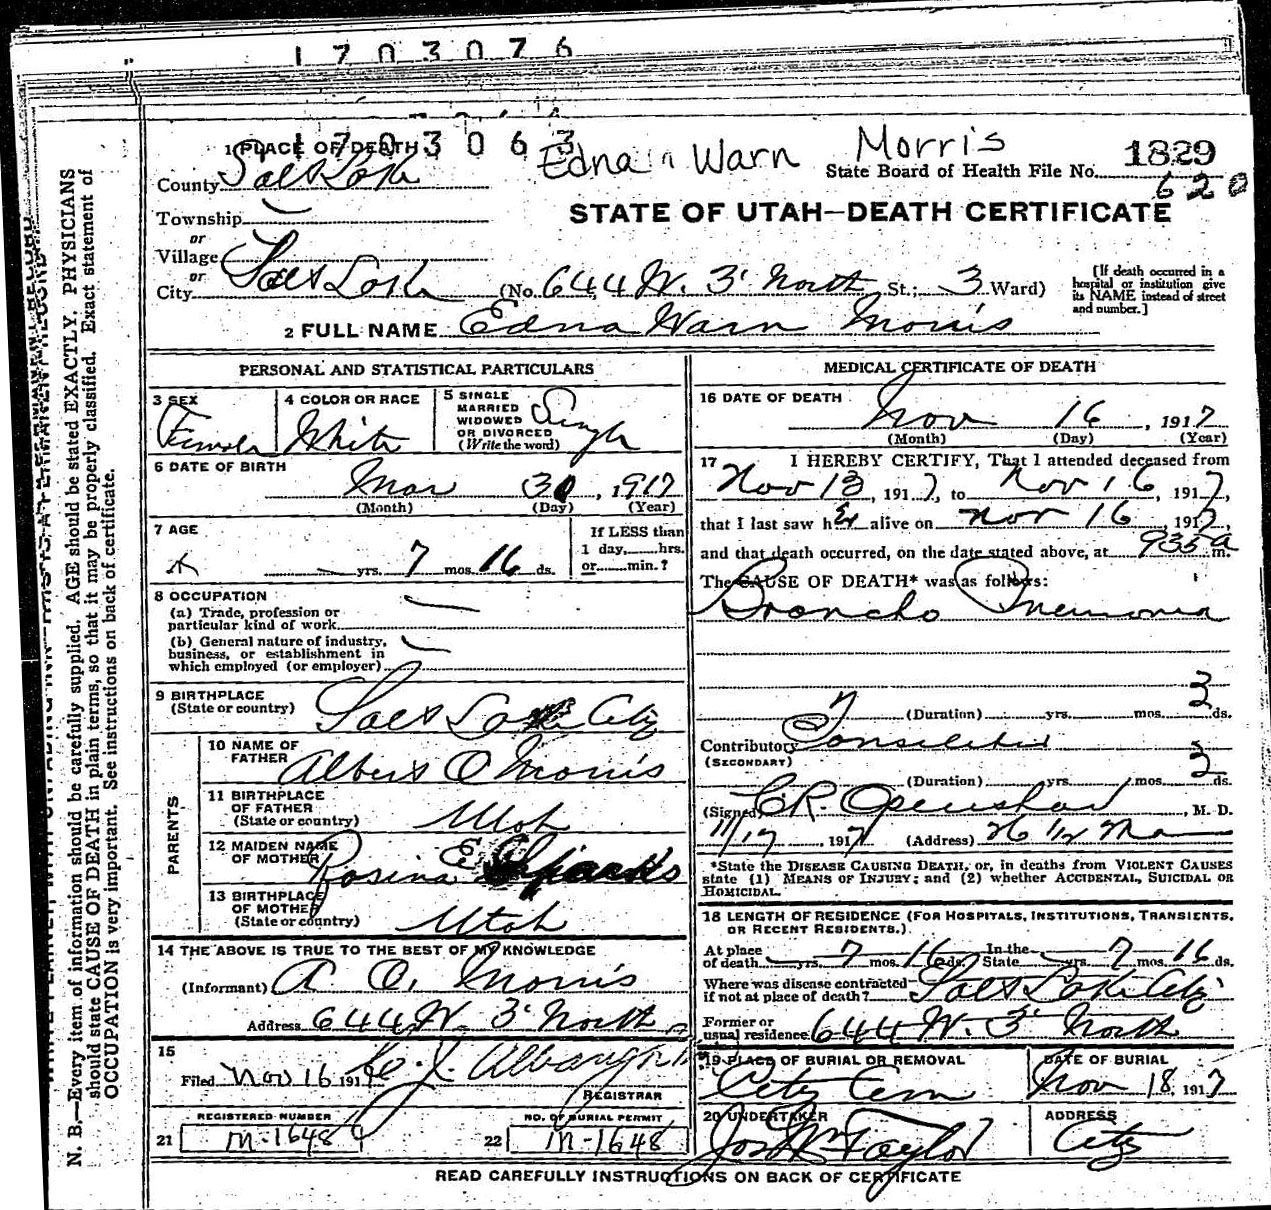 1703076
1703063
Edna Warn Morris
1 PLACE OF DEATH
State Board of Health File No. 1829
620
County Salt Lake
STATE OF UTAH—DEATH CERTIFICATE
Township
or
Village
or
City Salt Lake (No. 644 W. 3' North St.; 3 Ward)
[If death occurred in a hospital or institution give its NAME instead of street and number.]
2 FULL NAME Edna Warn Morris
PERSONAL AND STATISTICAL PARTICULARS
3 SEX Female
4 COLOR OR RACE White
5 SINGLE MARRIED WIDOWED OR DIVORCED (Write the word) Single
6 DATE OF BIRTH
Mar 30, 1917
(Month) (Day) (Year)
7 AGE
yrs. 7 mos. 16 ds.
If LESS than 1 day, hrs. or min.?
8 OCCUPATION
(a) Trade, profession or particular kind of work
(b) General nature of industry, business, or establishment in which employed (or employer)
9 BIRTHPLACE (State or country) Salt Lake City
PARENTS
10 NAME OF FATHER Albert O Morris
11 BIRTHPLACE OF FATHER (State or country) Utah
12 MAIDEN NAME OF MOTHER Rosina E Sparks
13 BIRTHPLACE OF MOTHER (State or country) Utah
14 THE ABOVE IS TRUE TO THE BEST OF MY KNOWLEDGE
(Informant) A O. Morris
Address 644 W. 3' North
15
Filed Nov 16 1917
REGISTRAR
REGISTERED NUMBER
21 M-1648
NO. OF BURIAL PERMIT
22 M-1648
MEDICAL CERTIFICATE OF DEATH
16 DATE OF DEATH
Nov 16, 1917
(Month) (Day) (Year)
17 I HEREBY CERTIFY, That I attended deceased from
Nov 13, 1917, to Nov 16, 1917,
that I last saw her alive on Nov 16, 1917,
and that death occurred, on the date stated above, at 935 a m.
The CAUSE OF DEATH* was as follows:
Broncho Pneumonia
(Duration) yrs. mos. 3 ds.
Contributory Tonsilitis
(SECONDARY)
(Duration) yrs. mos. 3 ds.
(Signed) C R. Openshaw, M. D.
11/17, 1917 (Address) 26 1/2 Main
*State the DISEASE CAUSING DEATH, or, in deaths from VIOLENT CAUSES state (1) MEANS OF INJURY; and (2) whether ACCIDENTAL, SUICIDAL OR HOMICIDAL.
18 LENGTH OF RESIDENCE (FOR HOSPITALS, INSTITUTIONS, TRANSIENTS, OR RECENT RESIDENTS.)
At place of death yrs. 7 mos. 16 ds. In the State yrs. 7 mos. 16 ds.
Where was disease contracted if not at place of death? Salt Lake City
Former or usual residence 644 W. 3' North
19 PLACE OF BURIAL OR REMOVAL
City Cem
DATE OF BURIAL
Nov 18, 1917
20 UNDERTAKER
Jos Wm Taylor
ADDRESS
City
READ CAREFULLY INSTRUCTIONS ON BACK OF CERTIFICATE
N. B.—Every item of information should be carefully supplied. AGE should be stated EXACTLY. PHYSICIANS
should state CAUSE OF DEATH in plain terms, so that it may be properly classified. Exact statement of
OCCUPATION is very important. See instructions on back of certificate.